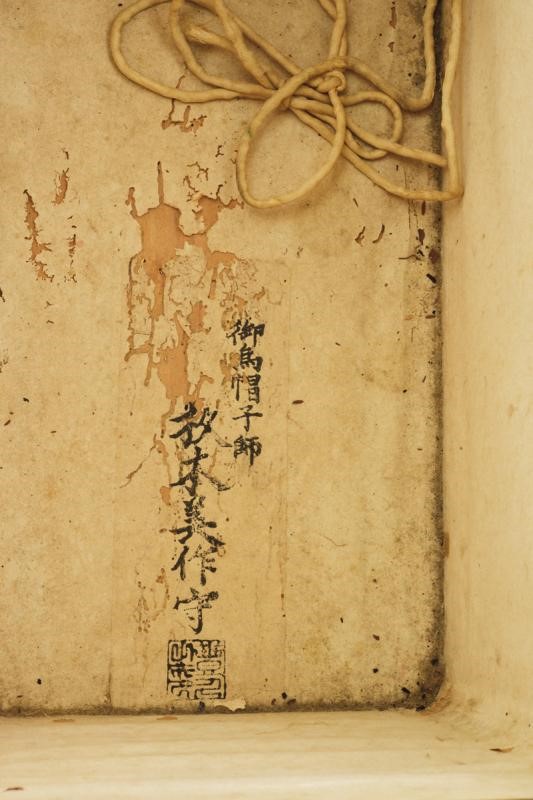 御烏帽子師
杦本美作守